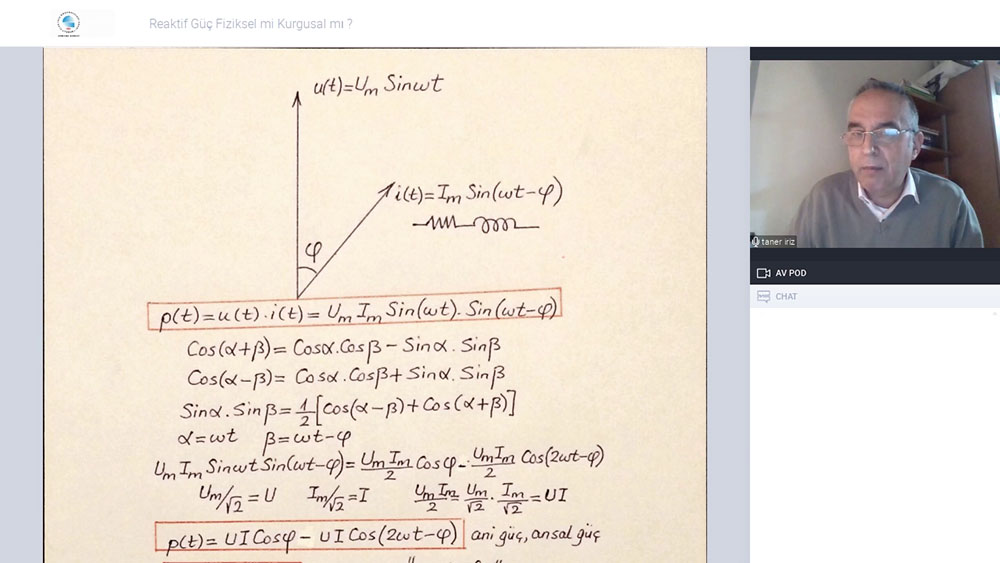 Reaktif Güç Fiziksel mi Kurgusal mı ?
u(t)=Um Sinωt
i(t)=Im Sin(ωt-φ)
φ
p(t)=u(t).i(t)=Um Im Sin(ωt).Sin(ωt-φ)
Cos(α+β)=Cosα.Cosβ-Sinα.Sinβ
Cos(α-β)=Cosα.Cosβ+Sinα.Sinβ
Sinα.Sinβ=1/2[Cos(α-β)+Cos(α+β)]
α=ωt β=ωt-φ
Um Im Sinωt Sin(ωt-φ)=UmIm/2 Cosφ-UmIm/2 Cos(2ωt-φ)
Um/√2=U Im/√2=I UmIm/2=Um/√2.Im/√2=UI
p(t)=UICosφ-UICos(2ωt-φ) ani güç, ansal güç
taner iriz
AV POD
CHAT